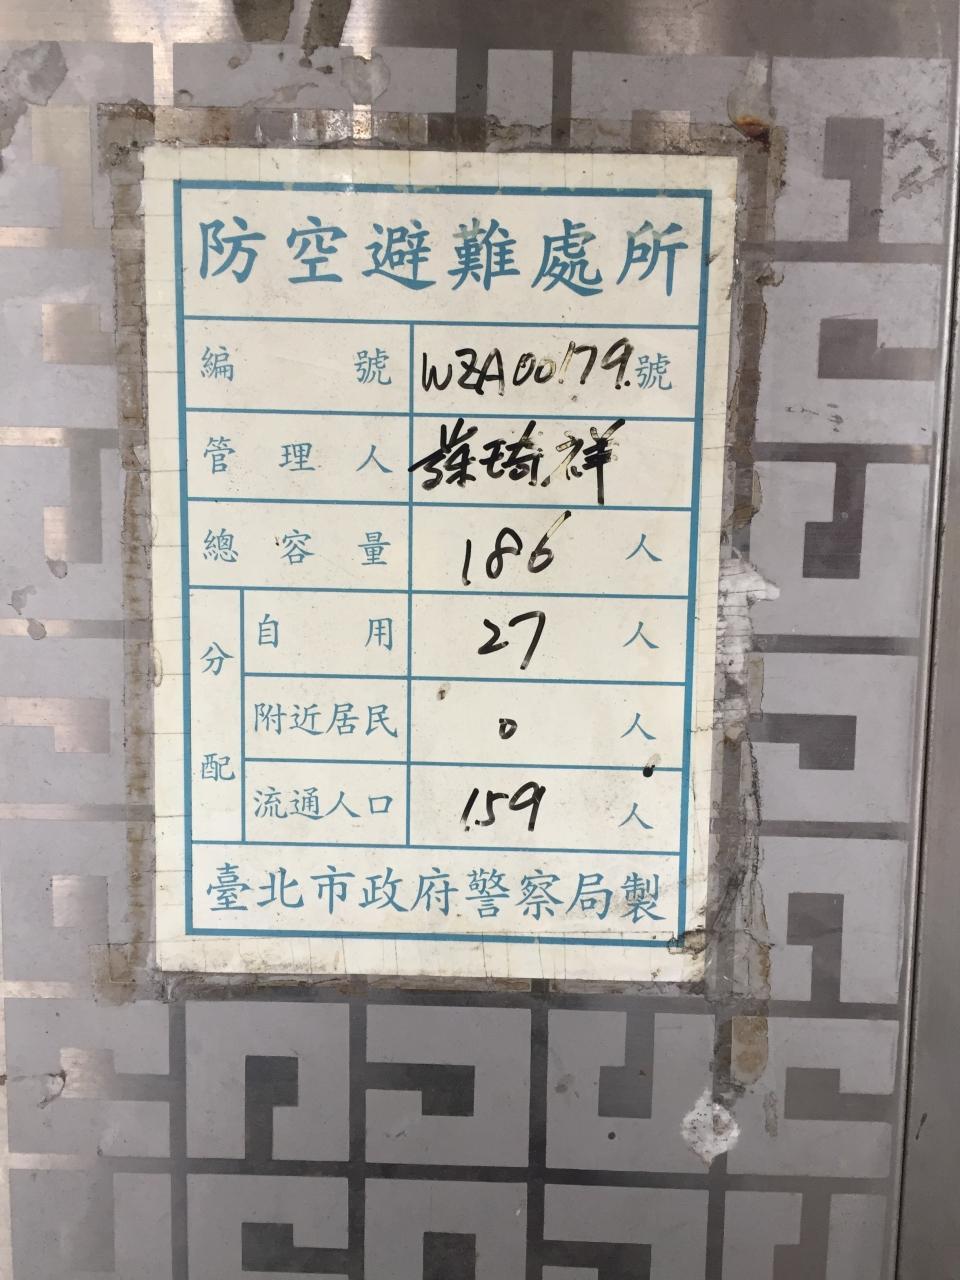 防空避難處所
編號 WZA00179號
管理人 葉琦祥
總容量 186人
分配
自用 27人
附近居民 0人
流通人口 159人
臺北市政府警察局製